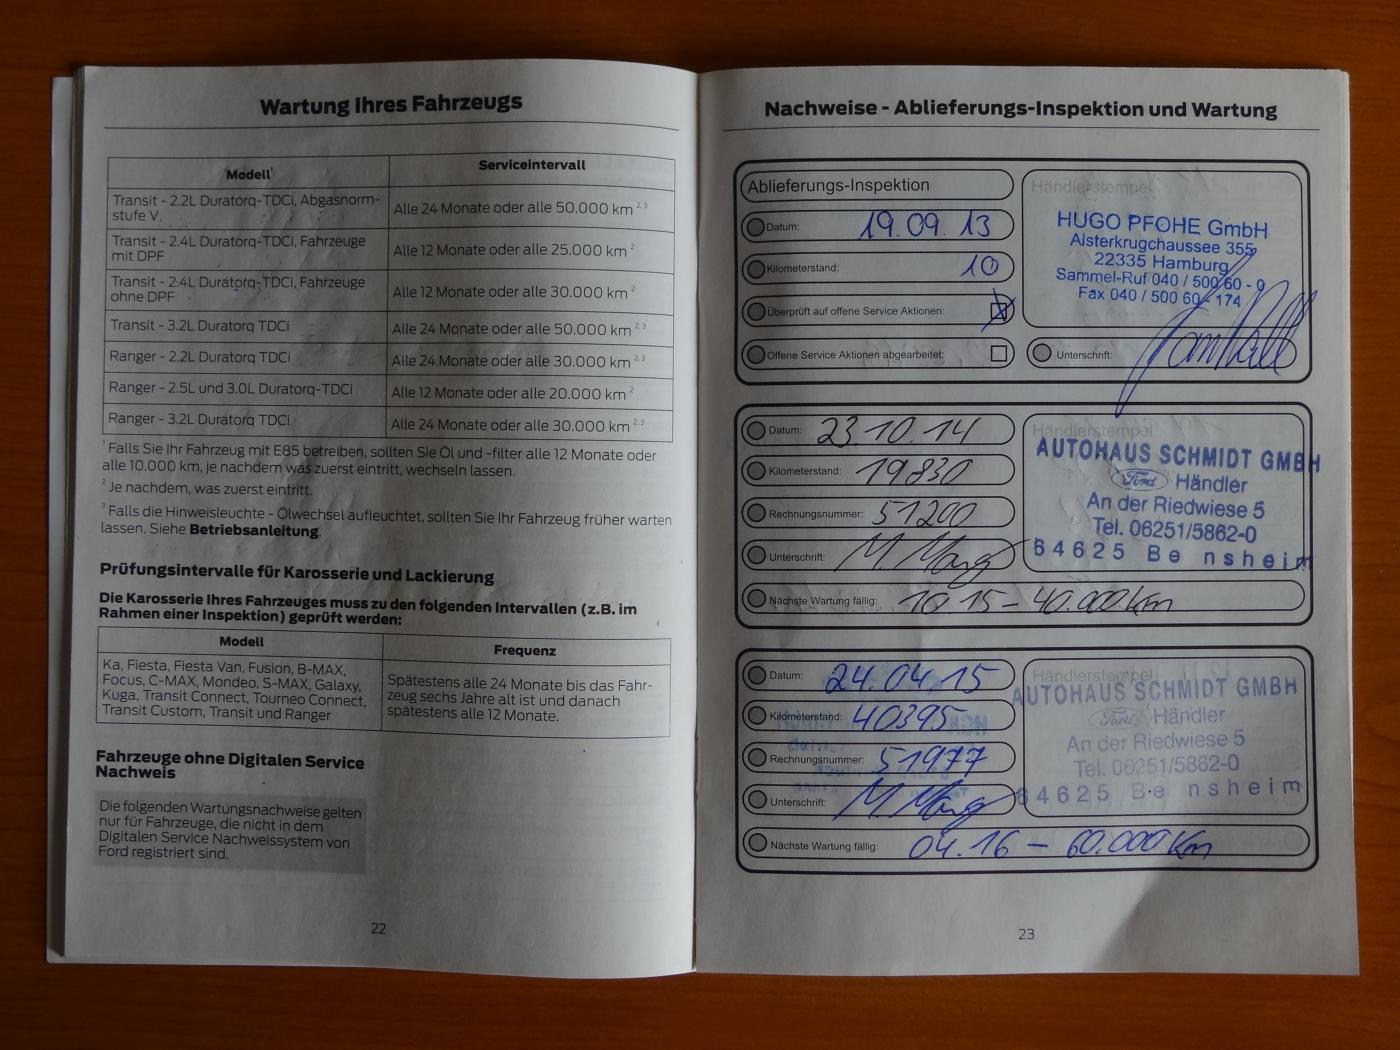 Wartung Ihres Fahrzeugs
Modell¹ Serviceintervall
Transit - 2.2L Duratorq-TDCi, Abgasnorm-
stufe V. Alle 24 Monate oder alle 50.000 km ²,³
Transit - 2.4L Duratorq-TDCi, Fahrzeuge
mit DPF Alle 12 Monate oder alle 25.000 km ²
Transit - 2.4L Duratorq-TDCi, Fahrzeuge
ohne DPF Alle 12 Monate oder alle 30.000 km ²
Transit - 3.2L Duratorq TDCi Alle 24 Monate oder alle 50.000 km ²,³
Ranger - 2.2L Duratorq TDCi Alle 24 Monate oder alle 30.000 km ²,³
Ranger - 2.5L und 3.0L Duratorq-TDCi Alle 12 Monate oder alle 20.000 km ²
Ranger - 3.2L Duratorq TDCi Alle 24 Monate oder alle 30.000 km ²,³
¹ Falls Sie Ihr Fahrzeug mit E85 betreiben, sollten Sie Öl und -filter alle 12 Monate oder
alle 10.000 km, je nachdem was zuerst eintritt, wechseln lassen.
² Je nachdem, was zuerst eintritt.
³ Falls die Hinweisleuchte - Ölwechsel aufleuchtet, sollten Sie Ihr Fahrzeug früher warten
lassen. Siehe Betriebsanleitung.
Prüfungsintervalle für Karosserie und Lackierung
Die Karosserie Ihres Fahrzeuges muss zu den folgenden Intervallen (z.B. im
Rahmen einer Inspektion) geprüft werden:
Modell Frequenz
Ka, Fiesta, Fiesta Van, Fusion, B-MAX,
Focus, C-MAX, Mondeo, S-MAX, Galaxy,
Kuga, Transit Connect, Tourneo Connect,
Transit Custom, Transit und Ranger
Spätestens alle 24 Monate bis das Fahr-
zeug sechs Jahre alt ist und danach
spätestens alle 12 Monate.
Fahrzeuge ohne Digitalen Service
Nachweis
Die folgenden Wartungsnachweise gelten
nur für Fahrzeuge, die nicht in dem
Digitalen Service Nachweissystem von
Ford registriert sind.
22
Nachweise - Ablieferungs-Inspektion und Wartung
Ablieferungs-Inspektion
Datum: 19.09.13
Kilometerstand: 10
Überprüft auf offene Service Aktionen:
Offene Service Aktionen abgearbeitet:
Händlerstempel
HUGO PFOHE GmbH
Alsterkrugchaussee 355
22335 Hamburg
Sammel-Ruf 040 / 500 60 - 0
Fax 040 / 500 60 - 174
Unterschrift:
Datum: 23.10.14
Kilometerstand: 19830
Rechnungsnummer: 51200
Unterschrift:
Händlerstempel
AUTOHAUS SCHMIDT GMBH
Ford Händler
An der Riedwiese 5
Tel. 06251/5862-0
64625 Bensheim
Nächste Wartung fällig: 10.15 - 40.000 km
Datum: 24.04.15
Kilometerstand: 40395
Rechnungsnummer: 51977
Unterschrift:
Händlerstempel
AUTOHAUS SCHMIDT GMBH
Ford Händler
An der Riedwiese 5
Tel. 06251/5862-0
64625 Bensheim
Nächste Wartung fällig: 04.16 - 60.000 km
23